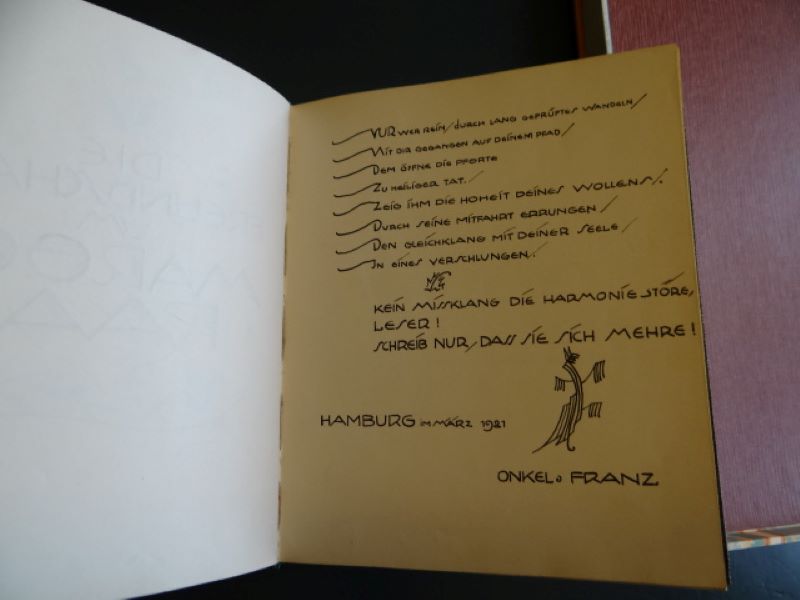 NUR WER REIN/DURCH LANG GEPRÜFTES WANDELN/
MIT DIR GEGANGEN AUF DEINEM PFAD/
DEM ÖFFNE DIE PFORTE
ZU HEILIGER TAT./
ZEIG IHM DIE HOHEIT DEINES WOLLENS/.
DURCH SEINE MITFAHRT ERRUNGEN/
DEN GLEICHKLANG MIT DEINER SEELE/
IN EINES VERSCHLUNGEN./
KEIN MISSKLANG DIE HARMONIE STÖRE,
LESER!
SCHREIB NUR, DASS SIE SICH MEHRE!
HAMBURG IM MÄRZ 1921
ONKEL FRANZ